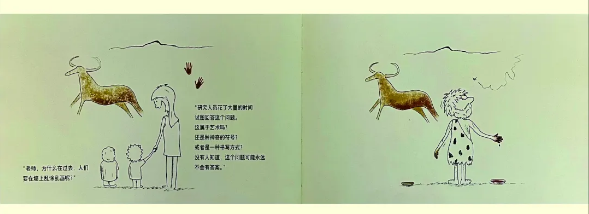 "老师，为什么在过去，人们
要在墙上乱涂乱画呢？"
"研究人员花了大量的时间
试图回答这个问题。
这属于艺术吗？
还是种神秘的符号？
或者是一种书写方式？
没有人知道，这个问题可能永远
不会有答案。"